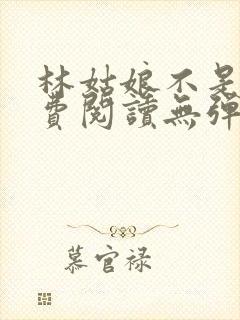 林姑娘不是
費閱讀無彈
慕官禄